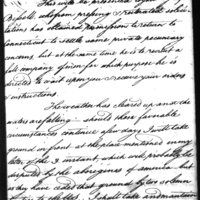 This will be presented by
Russell, whom on pressing & reiterated solici-
tations has obtained permission to return to
Connecticut to settle some private pecuniary
concerns, but at the same time he is to recruit a
full company, given for which purpose he is
directed to wait upon you & receive your orders
& instructions.
The weather has cleared up and the
waters are falling - should these favorable
circumstances continue a few days I will take
ground in front at the place mentioned in my
letter of the 3 instant, which will probably be
disputed by the aborigines of america - but
as they have ceded that ground by two solemn
to the states, I shall take and maintain